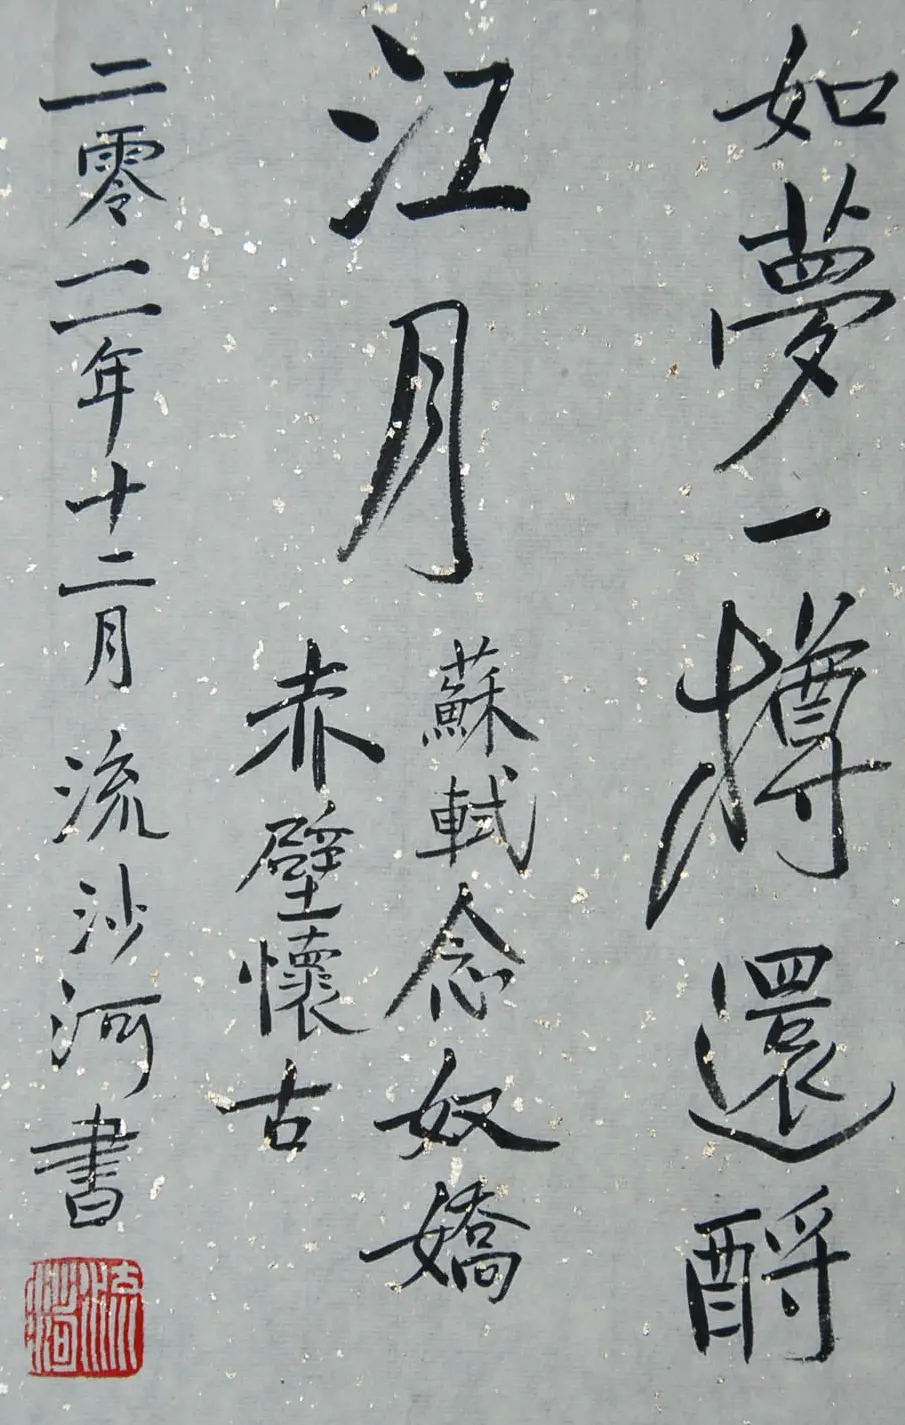 如夢一樽還酹
江月
蘇軾念奴嬌
赤壁懷古
二零一一年十二月流沙河書
流沙河